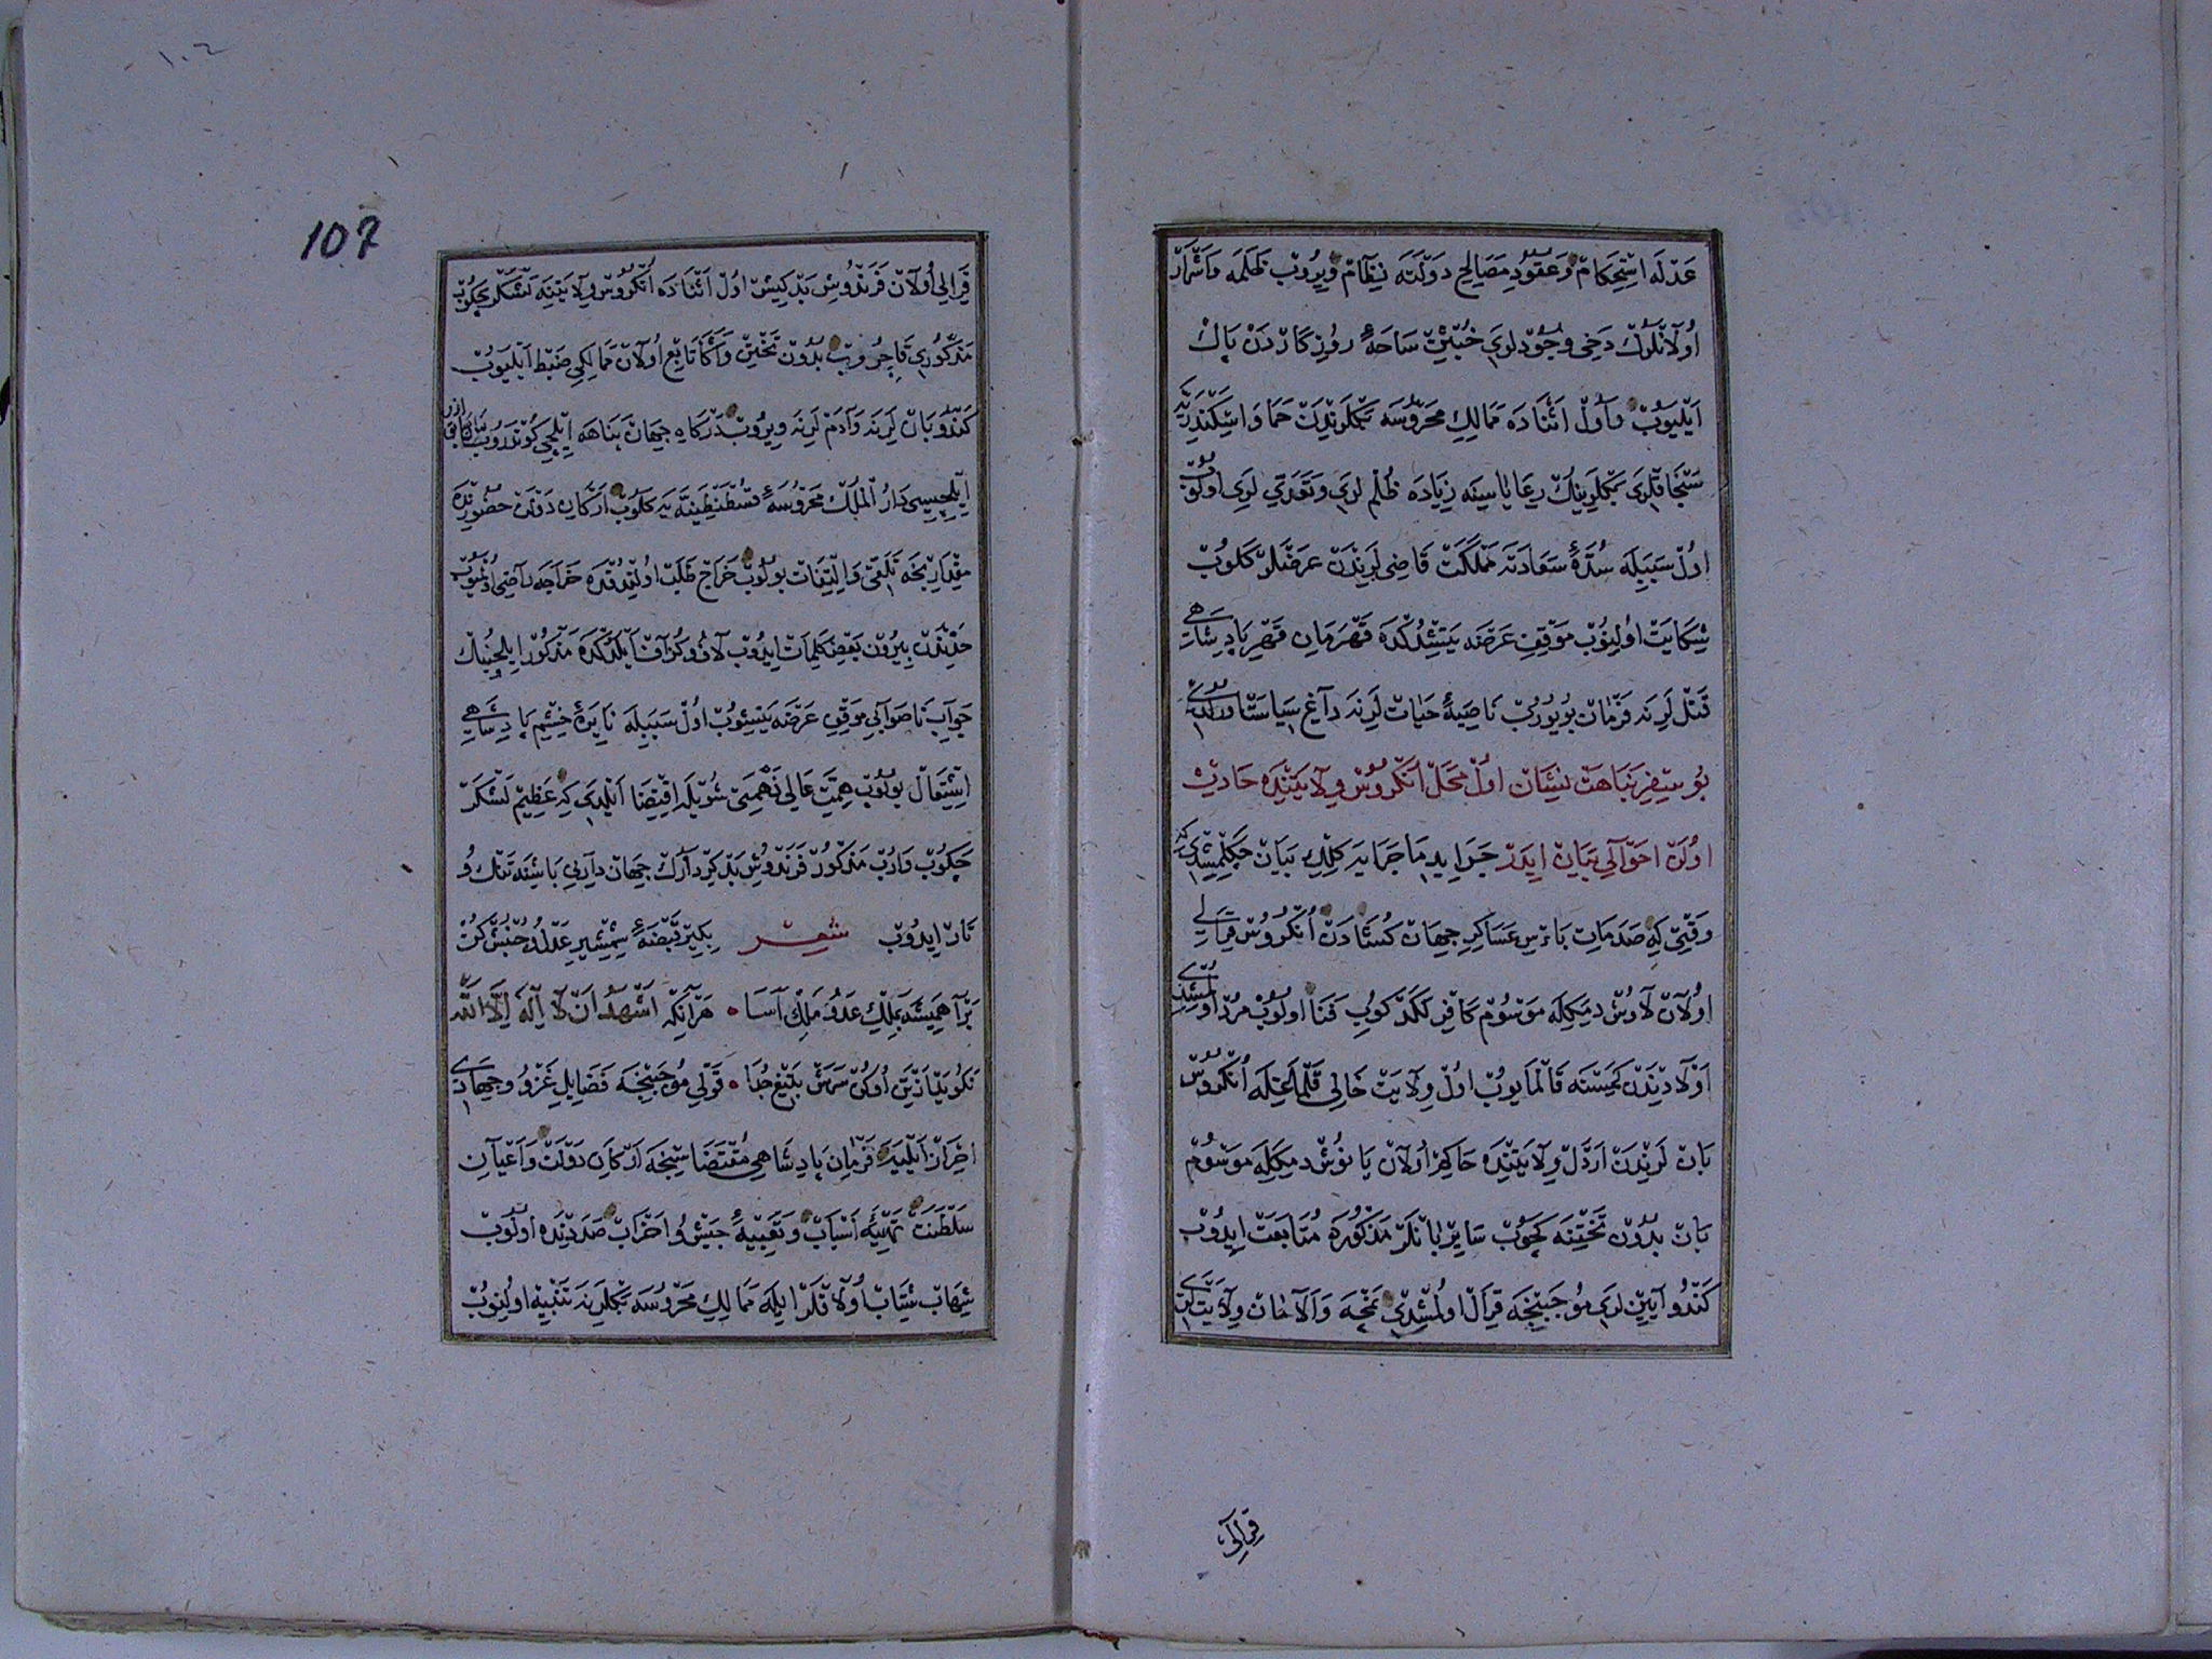 عدله استحکام و عقود مصالح دولته نظام ویروب ظلمه و اشرار
اولانلرك دخی وجود لری خبثین ساحهٔ روزکاردن پاك
ایلیوب و اول اثناده ممالك محروسه بکلرندن حما و اسکندریه
سنجاقلری بکلرینك رعایاسینه زیاده ظلم لری و تعدی لری اولوب
اول سببیله سدهٔ سعادته مملکت قاضی لرندن عرضلر کلوب
شکایت اولنوب موقف عرضه یتشدکده قهرمان قهر پادشاهی
قتل لرینه فرمان بویوروب ناصیهٔ حیات لرینه داغ سیاست اورلدی
بو سفر نباهت نشان اول محل انکروس ولایتنده حادث
اولن احوالی بیان ایدر جراید ماجرایه کلك بیان چکلمشدی که
وقتی که صدمات باس عساکر جهان کشادن انکروس قرالی
اولان لاوش دمکله موسوم کافر لکد کوب فنا اولوب مرد اولمشدی
اولادندن کمسنه قالمیوب اول ولایت خالی قلمغله انکروس
بان لرندن اردل ولایتنده حاکم اولان یانوش دمکله موسوم
بان بدون تختنه کچوب سایر بانلر مذکوره متابعت ایدوب
کندو آیین لری موجبنجه قرال اولمشدی نمچه و الامان ولایتنك
قرالی
107
١٠٦
قرالی اولان فرندوش بد کیش اول اثناده انکروس ولایتنه لشکر چکوب
مذکوری قاچوروب بدون تختین و اکا تابع اولان ممالکی ضبط ایلیوب
کندو بان لرینه و آدم لرینه ویروب درکاه جهان پناهه ایلچی کوندروب
ایلچیسی دار الملك محروسهٔ قسطنطینیه یه کلوب ارکان دولت حضورنده
مقدارنجه تلقی و التفات بولوب خراج طلب اولندقده خراجه راضی اولمیوب
حدندن بیرون بعض کلمات ایدوب لاف و کزاف ایلدکده مذکور ایلچینك
جواب ناصوابی موقف عرضه یتشوب اول سببیله نایرهٔ خشم پادشاهی
اشتعال بولوب همت عالی نهمتی شویله اقتضا ایلدی که عظیم لشکر
چکوب واروب مذکور فرندوش بد کردارك جهان داری باشنه تنك و
تار ایدوب شعر بکیر قبضهٔ شمشیر عدل و جنبش کن
برآ همیشه بملك عدو ملك آسا • هر آنکه اشهد ان لا اله الا الله
نکوید از بن او کن سرش بتیغ جدا • قولی موجبنجه فضایل غزو و جهادی
احراز ایلیه فرمان پادشاهی مقتضاسنجه ارکان دولت و اعیان
سلطنت تهیهٔ اسباب و تعبیهٔ جیش و احزاب صددنده اولوب
شهاب شتاب اولاقلر ایله ممالك محروسه بکلرینه تنبیه اولنوب